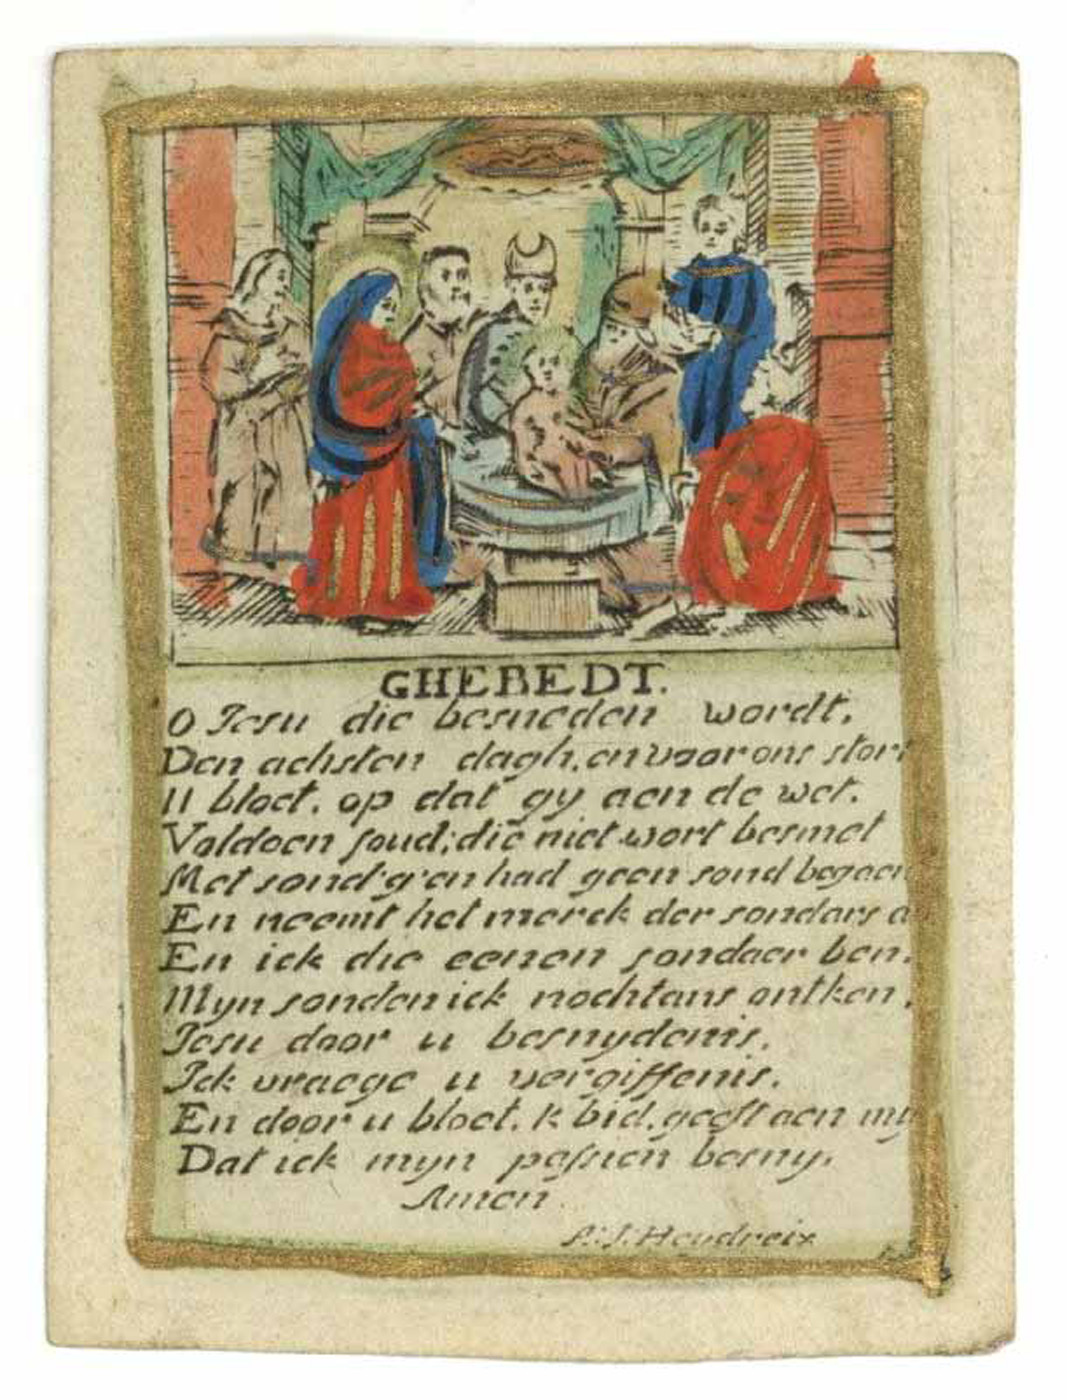 GHEBEDT.
O Jesu die besneden wordt.
Den achsten dagh, en voor ons stort
U bloet. op dat gy aen de wet.
Voldoen soud; die niet wort besmet
Met sond' g'en had geen sond begaen
En neemt het merck der sondars a
En ick die eenen sondaer ben.
Myn sonden ick nochtans ontken.
Jesu door u besnydenis.
Ick vraege u vergiffenis.
En door u bloet. k bid. geeft aen my
Dat ick myn passien besny.
Amen.
Hendreix